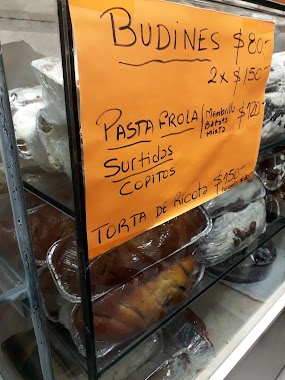 BUDINES $80-
2x$150-
PASTA FROLA / Membrillo $120-
Batata
mixta
Surtidas
COPITOS
TORTA DE Ricota $150-